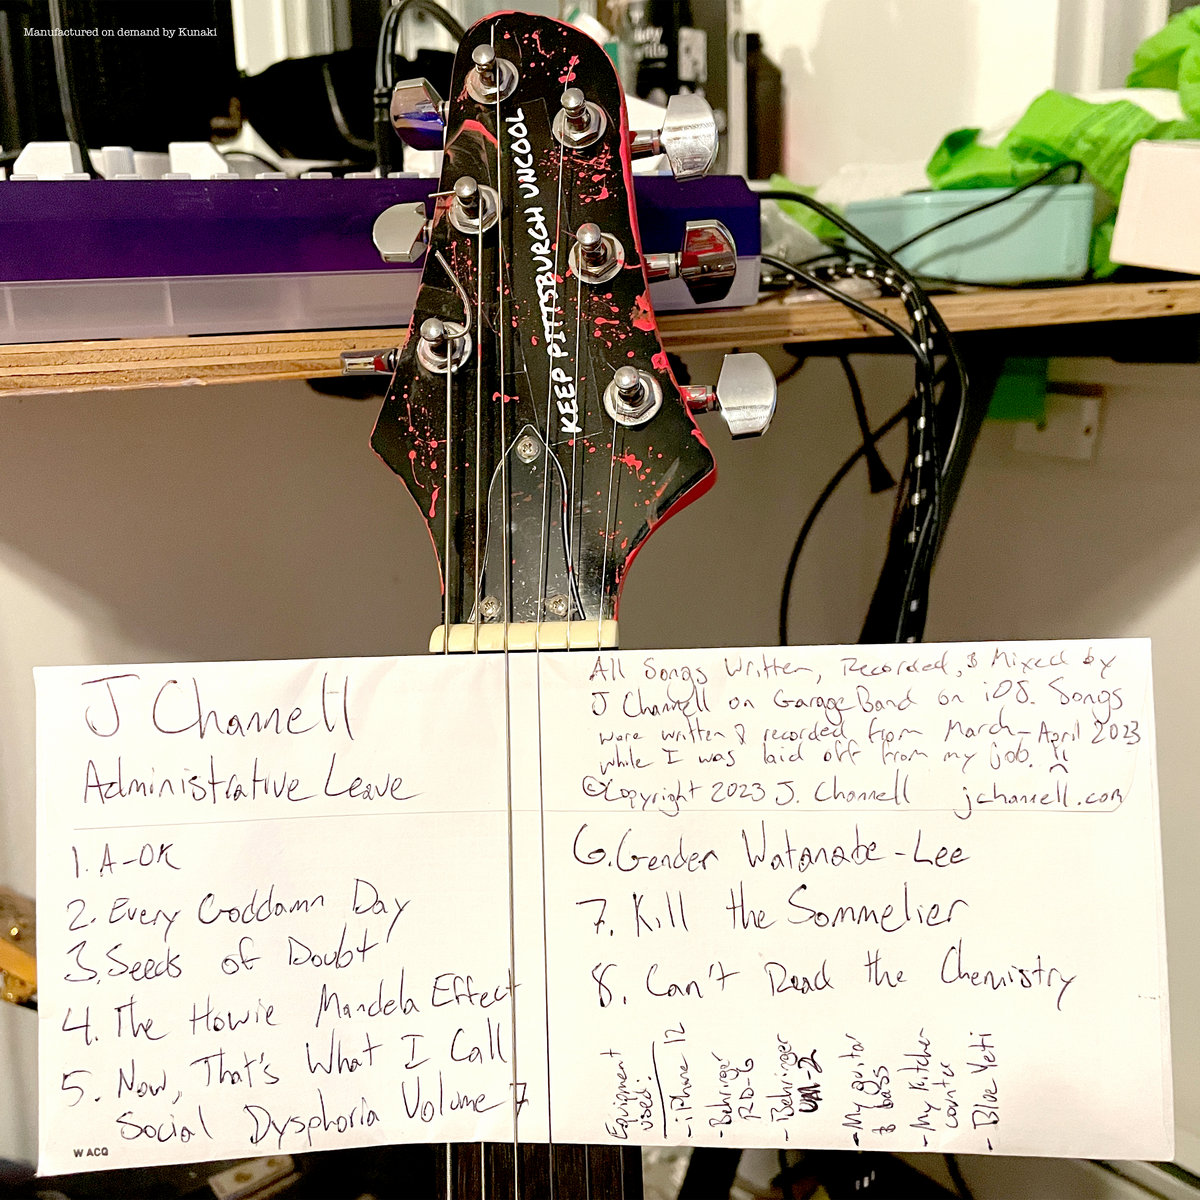 Manufactured on demand by Kunaki
KEEP PITTSBURGH UNCOOL
J Channell
Administrative Leave
All Songs Written, Recorded, & Mixed by
J Channell on GarageBand on iOS. Songs
were written & recorded from March-April 2023
while I was laid off from my job.
©Copyright 2023 J. Channell jchannell.com
1. A-OK
2. Every Goddamn Day
3. Seeds of Doubt
4. The Howie Mandela Effect
5. Now, That's What I Call
Social Dysphoria Volume 7
6. Gender Watanabe-Lee
7. Kill the Sommelier
8. Can't Read the Chemistry
Equipment
used:
- iPhone 12
- Behringer
RD-6
- Behringer
UM-2
- My guitar
& bass
- My Kitchen
counter
- Blue Yeti
W ACQ